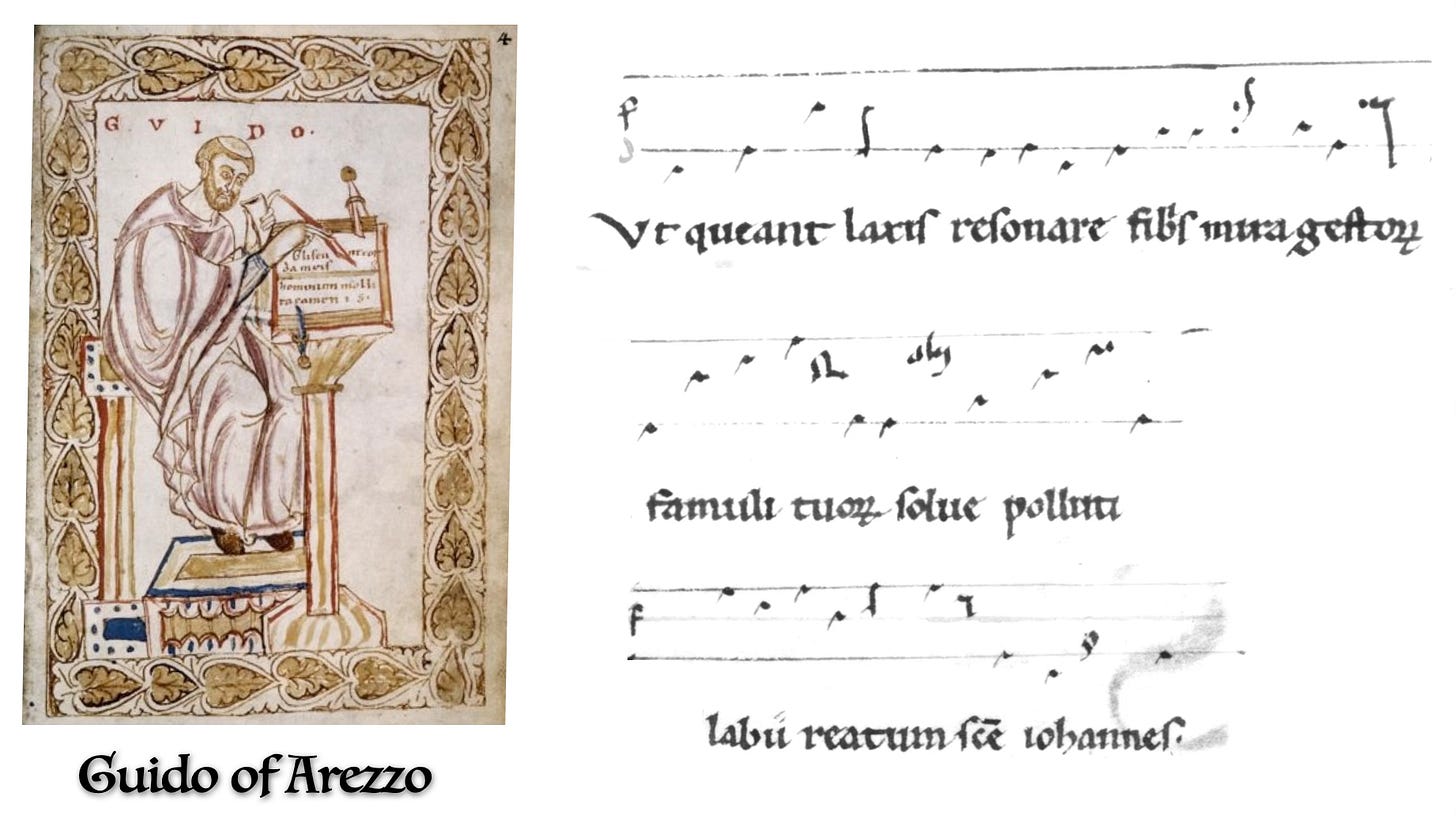 4
G V I D O.
f
Vt queant laxis resonare fibs mira gestoꝝ
famuli tuoꝝ solue polluti
f
labii reatum scē iohannes.
Guido of Arezzo